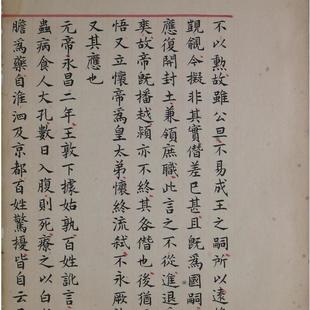 不以勲故雖公旦不易成王之嗣所以遠
覬覦今擬非其實僭差已甚且既爲國嗣
應復開封土兼領庶職此言之不從進退
爽故帝既播越穎亦不終其咎僭也後猶
悟又立懷帝爲皇太弟懷終流弑不永厥
又其應也
元帝永昌二年王敦下據姑孰百姓訛言
蟲病食人大孔數日入腹則死療之以白
膽爲藥自淮泗及京都百姓驚擾皆自云